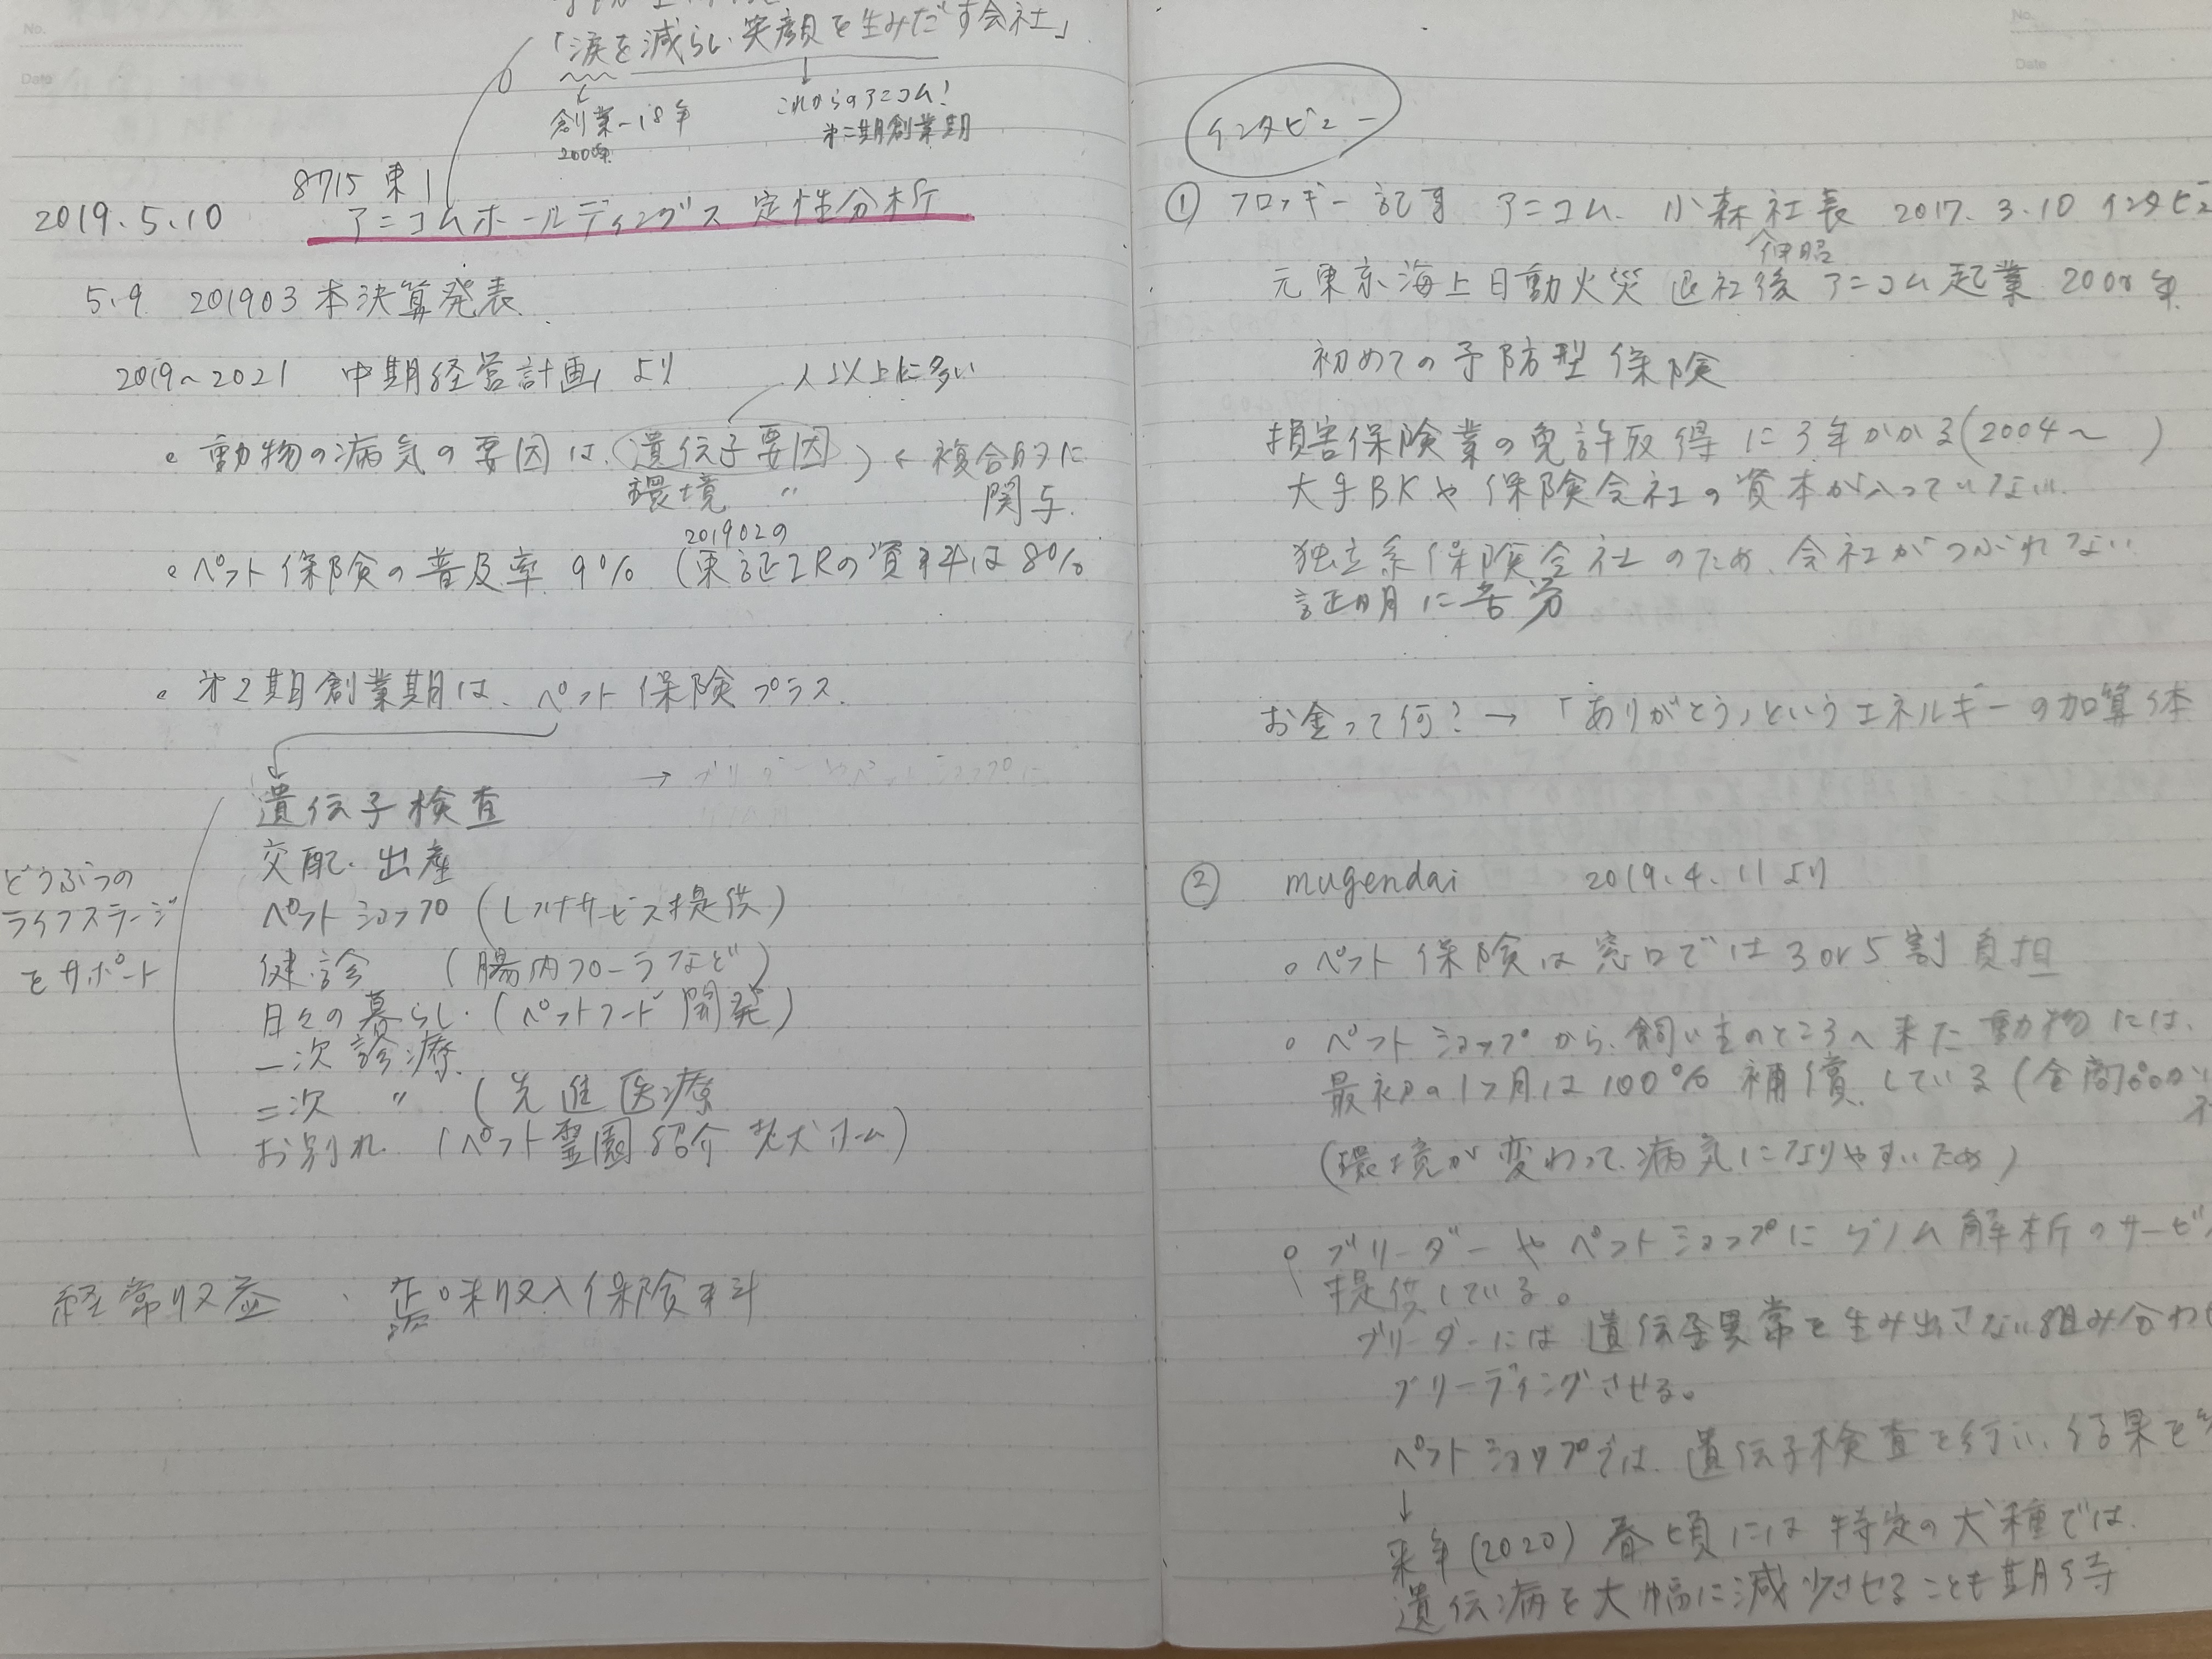 「涙を減らし笑顔を生みだす会社」
創業〜18年
2000年
これからのアニコム!
第二期創業期
8715 東1
2019.5.10 アニコムホールディングス 定性分析
5.9 201903本決算発表
2019〜2021 中期経営計画より
人以上に多い
。動物の病気の要因は、遺伝子要因 ) ← 複合的に
環境 〃 関与.
201902の
。ペット保険の普及率 9% (東証IRの資料は8%
。第2期創業期は、ペット保険プラス.
→ ブリーダーやペットショップに
遺伝子検査
交配・出産
ペットショップ (レスサービス提供)
健診 (腸内フローラなど)
日々の暮らし・(ペットフード開発)
一次診療
二次 〃 (先進医療
お別れ (ペット霊園紹介 老犬ホーム)
どうぶつの
ライフステージ
をサポート
経常収益 、 正味収入保険料
No.
Date
No.
Date
インタビュー
① フロッギー記事 アニコム 小森社長 2017.3.10 インタビュ
伸昭
元東京海上日動火災 退社後 アニコム起業 2000年
初めての予防型保険
損害保険業の免許取得に3年かかる(2004〜 )
大手BKや保険会社の資本が入っていない
独立系保険会社のため、会社がつぶれない
証明に苦労
お金って何? → 「ありがとう」というエネルギーの加算体
② mugendai 2019.4.11より
。ペット保険は窓口では3or5割負担
。ペットショップから、飼い主のところへ来た動物には、
最初の1ヶ月は100%補償している(全商品
(環境が変わって、病気になりやすいため)
。ブリーダーやペットショップにゲノム解析のサービ
提供している。
ブリーダーには遺伝子異常を生み出さない組み分わ
ブリーディングさせる。
ペットショップでは、遺伝子検査を行い、結果を
↓
来年(2020)春頃には特定の犬種では、
遺伝病を大幅に減少させることも期待